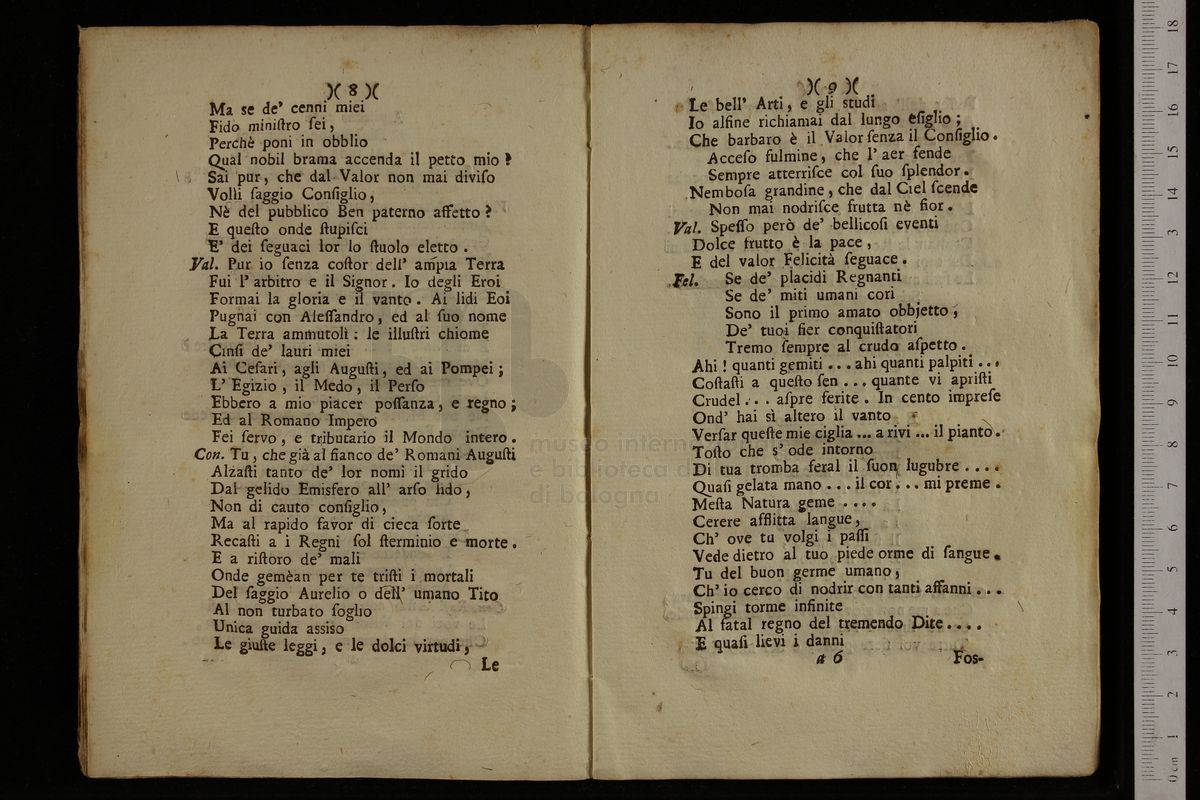 )( 8 )(
Ma se de' cenni miei
Fido miniſtro ſei,
Perchè poni in obblio
Qual nobil brama accenda il petto mio?
Sai pur, che dal Valor non mai diviſo
Volli ſaggio Conſiglio,
Nè del pubblico Ben paterno affetto?
E queſto onde ſtupiſci
E' dei ſeguaci lor lo ſtuolo eletto.
Val. Pur io ſenza coſtor dell' ampia Terra
Fui l' arbitro e il Signor. Io degli Eroi
Formai la gloria e il vanto. Ai lidi Eoi
Pugnai con Aleſſandro, ed al ſuo nome
La Terra ammutolì: le illuſtri chiome
Cinſi de' lauri miei
Ai Ceſari, agli Auguſti, ed ai Pompei;
L' Egizio, il Medo, il Perſo
Ebbero a mio piacer poſſanza, e regno;
Ed al Romano Impero
Fei ſervo, e tributario il Mondo intero.
Con. Tu, che già al fianco de' Romani Auguſti
Alzaſti tanto de' lor nomi il grido
Dal gelido Emisfero all' arſo lido,
Non di cauto conſiglio,
Ma al rapido favor di cieca ſorte
Recaſti a i Regni ſol ſterminio e morte.
E a riſtoro de' mali
Onde gemèan per te triſti i mortali
Del ſaggio Aurelio o dell' umano Tito
Al non turbato ſoglio
Unica guida assiso
Le giuſte leggi, e le dolci virtudi,
Le
)( 9 )(
Le bell' Arti, e gli studi
Io alfine richiamai dal lungo eſiglio;
Che barbaro è il Valor ſenza il Conſiglio.
Acceſo fulmine, che l' aer fende
Sempre atterriſce col ſuo ſplendor.
Nemboſa grandine, che dal Ciel ſcende
Non mai nodriſce frutta nè fior.
Val. Speſſo però de' bellicoſi eventi
Dolce frutto è la pace,
E del valor Felicità ſeguace.
Fel. Se de' placidi Regnanti
Se de' miti umani cori
Sono il primo amato obbjetto,
De' tuoi fier conquiſtatori
Tremo ſempre al crudo aſpetto.
Ahi! quanti gemiti ... ahi quanti palpiti ...
Coſtaſti a queſto ſen ... quante vi apriſti
Crudel ... aſpre ferite. In cento impreſe
Ond' hai sì altero il vanto
Verſar queſte mie ciglia ... a rivi ... il pianto.
Toſto che s' ode intorno
Di tua tromba feral il ſuon lugubre ....
Quaſi gelata mano ... il cor ... mi preme.
Meſta Natura geme ....
Cerere afflitta langue,
Ch' ove tu volgi i paſſi
Vede dietro al tuo piede orme di ſangue.
Tu del buon germe umano,
Ch' io cerco di nodrir con tanti affanni ...
Spingi torme infinite
Al fatal regno del tremendo Dite ....
E quaſi lievi i danni
a 6 Fos-